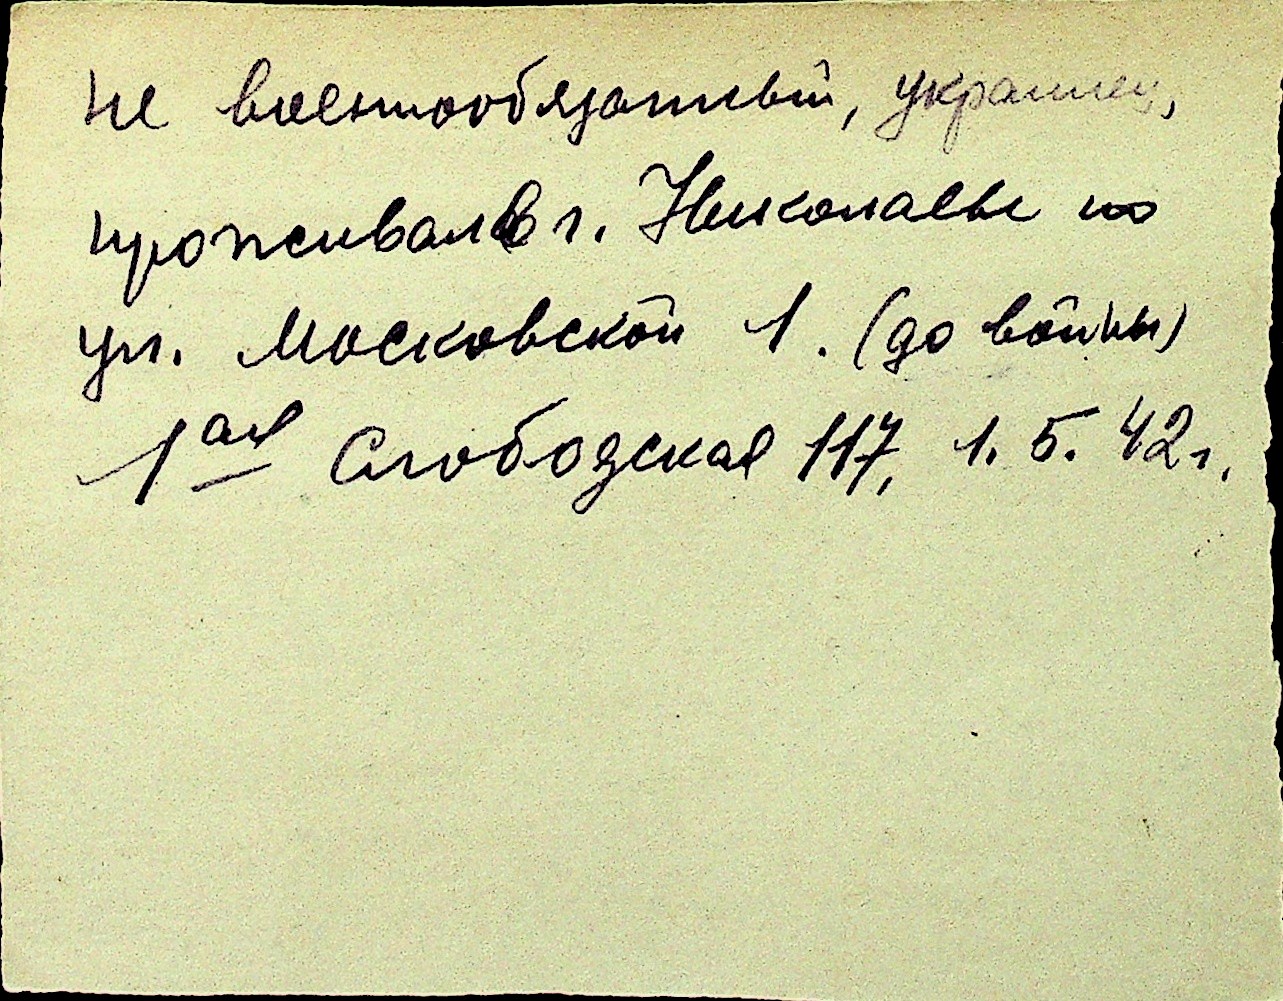 не военнообязанный, украинец,
проживал в г. Николаеве по
ул. Московской 1. (до войны)
1ая Слободская 117, 1.5.42г.